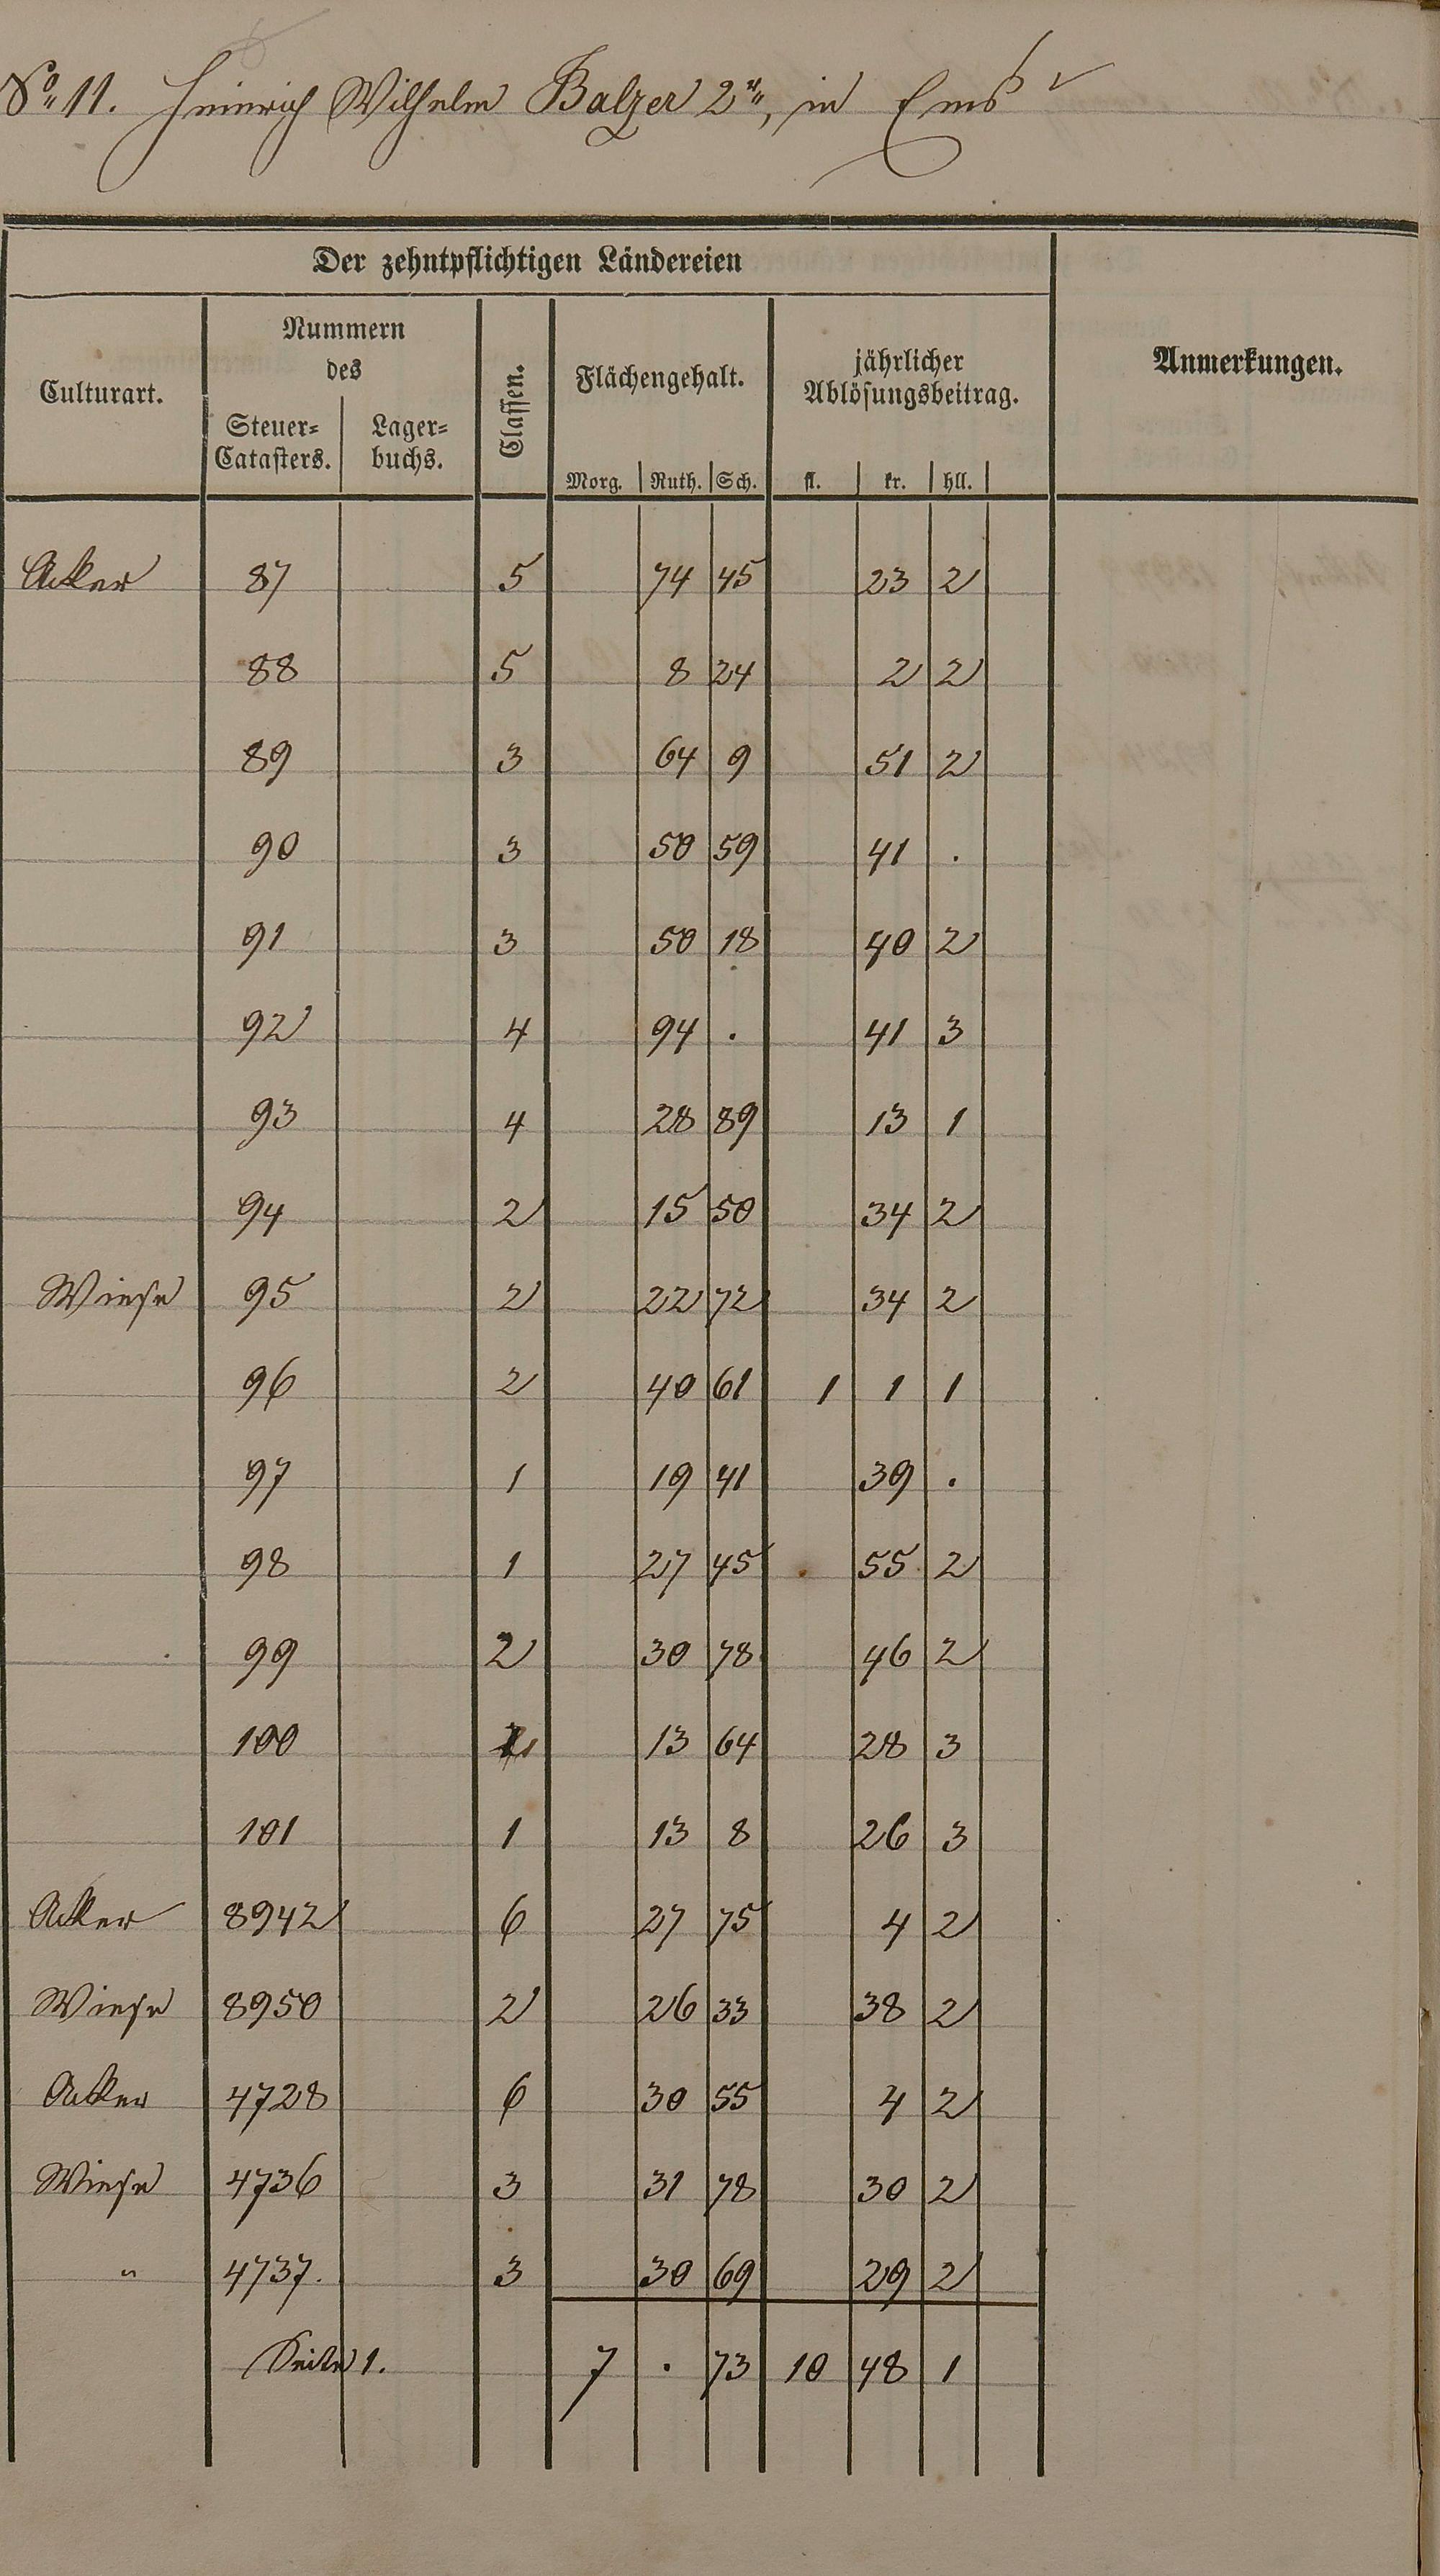 No 11. Heinrich Wilhelm Balzer 2r, in Ems
Der zehntpflichtigen Ländereien
Culturart. Nummern des Steuer=Catasters. Lager=buchs. Classen. Flächengehalt. Morg. Ruth. Sch. jährlicher Ablösungsbeitrag. fl. kr. hll. Anmerkungen.
Acker 87 5 74 45 23 2
88 5 8 24 2 2
89 3 64 9 51 2
90 3 50 59 41 .
91 3 50 18 40 2
92 4 94 . 41 3
93 4 28 89 13 1
94 2 15 50 34 2
Wiese 95 2 22 72 34 2
96 2 40 61 1 1 1
97 1 19 41 39 .
98 1 27 45 55 2
99 2 30 78 46 2
100 13 64 28 3
101 1 13 8 26 3
Acker 8942 6 27 75 4 2
Wiese 8950 2 26 33 38 2
Acker 4728 6 30 55 4 2
Wiese 4736 3 31 78 30 2
" 4737. 3 30 69 29 2
Seite 1. 7 . 73 10 48 1